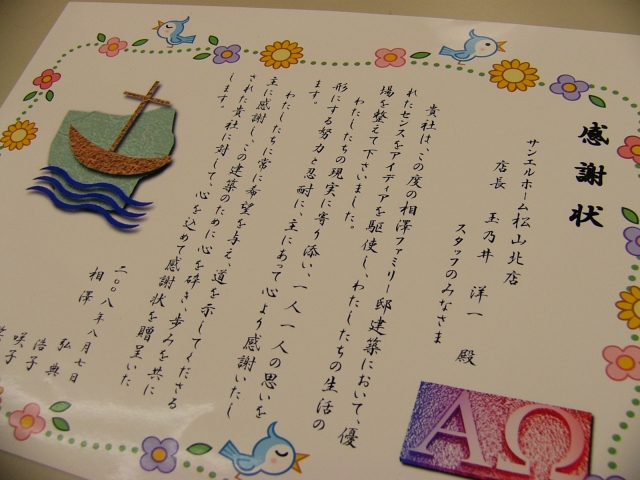 感謝状
サンエルホーム松山北店
店長 玉乃井 洋一 殿
スタッフのみなさま
貴社は、この度の相澤ファミリー邸建築において、優
れたセンスをアイディアを駆使し、わたしたちの生活の
場を整えて下さいました。
わたしたちの現実に寄り添い、一人一人の思いを
形にする努力と忍耐に、主にあって心より感謝いたし
ます。
わたしたちに常に希望を与え、道を示してくださる
主に感謝し、この建築のために心を砕き、歩みを共に
された貴社に対して、心を込めて感謝状を贈呈いた
します。
二〇〇八年八月七日
相澤 弘典
浩子
咲子
ΑΩ